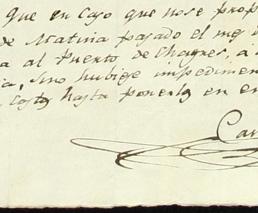 que en caso que nose prop
de Matina pasado el mes d
a al Puerto de Chagres, a
ia, sino hubiese impedimen
costa hasta ponerlo en e
Car